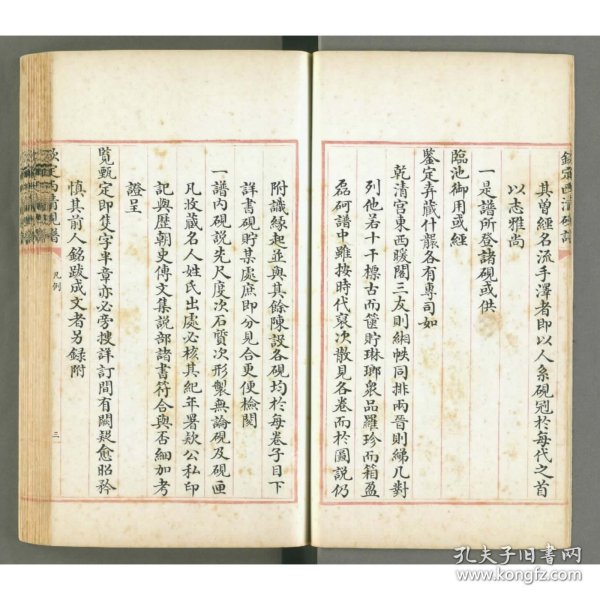 欽定西清硯譜
其曾經名流手澤者即以人系硯冠於每代之首
以志雅尚
一是譜所登諸硯或供
臨池御用或經
鑒定弆藏什襲各有專司如
乾清宮東西暖閣三友則緗帙同排兩晉則綈几對
列他若十干標古而篋貯琳瑯衆品羅珍而箱盈
磊砢譜中雖按時代裒次散見各卷而於圖說仍
附識緣起並與其餘陳設各硯均於每卷子目下
詳書硯貯某處庶即分見合更便檢閱
一譜內硯說先尺度次石質次形製無論硯及硯匣
凡收藏名人姓氏出處必核其紀年署欵公私印
記與歷朝史傳文集說部諸書符合與否細加考
證呈
覽甄定即隻字半章亦必旁搜詳訂間有闕疑愈昭矜
慎其前人銘跋成文者另錄附
欽定西清硯譜
凡例
三
孔夫子旧书网
www.kongfz.com